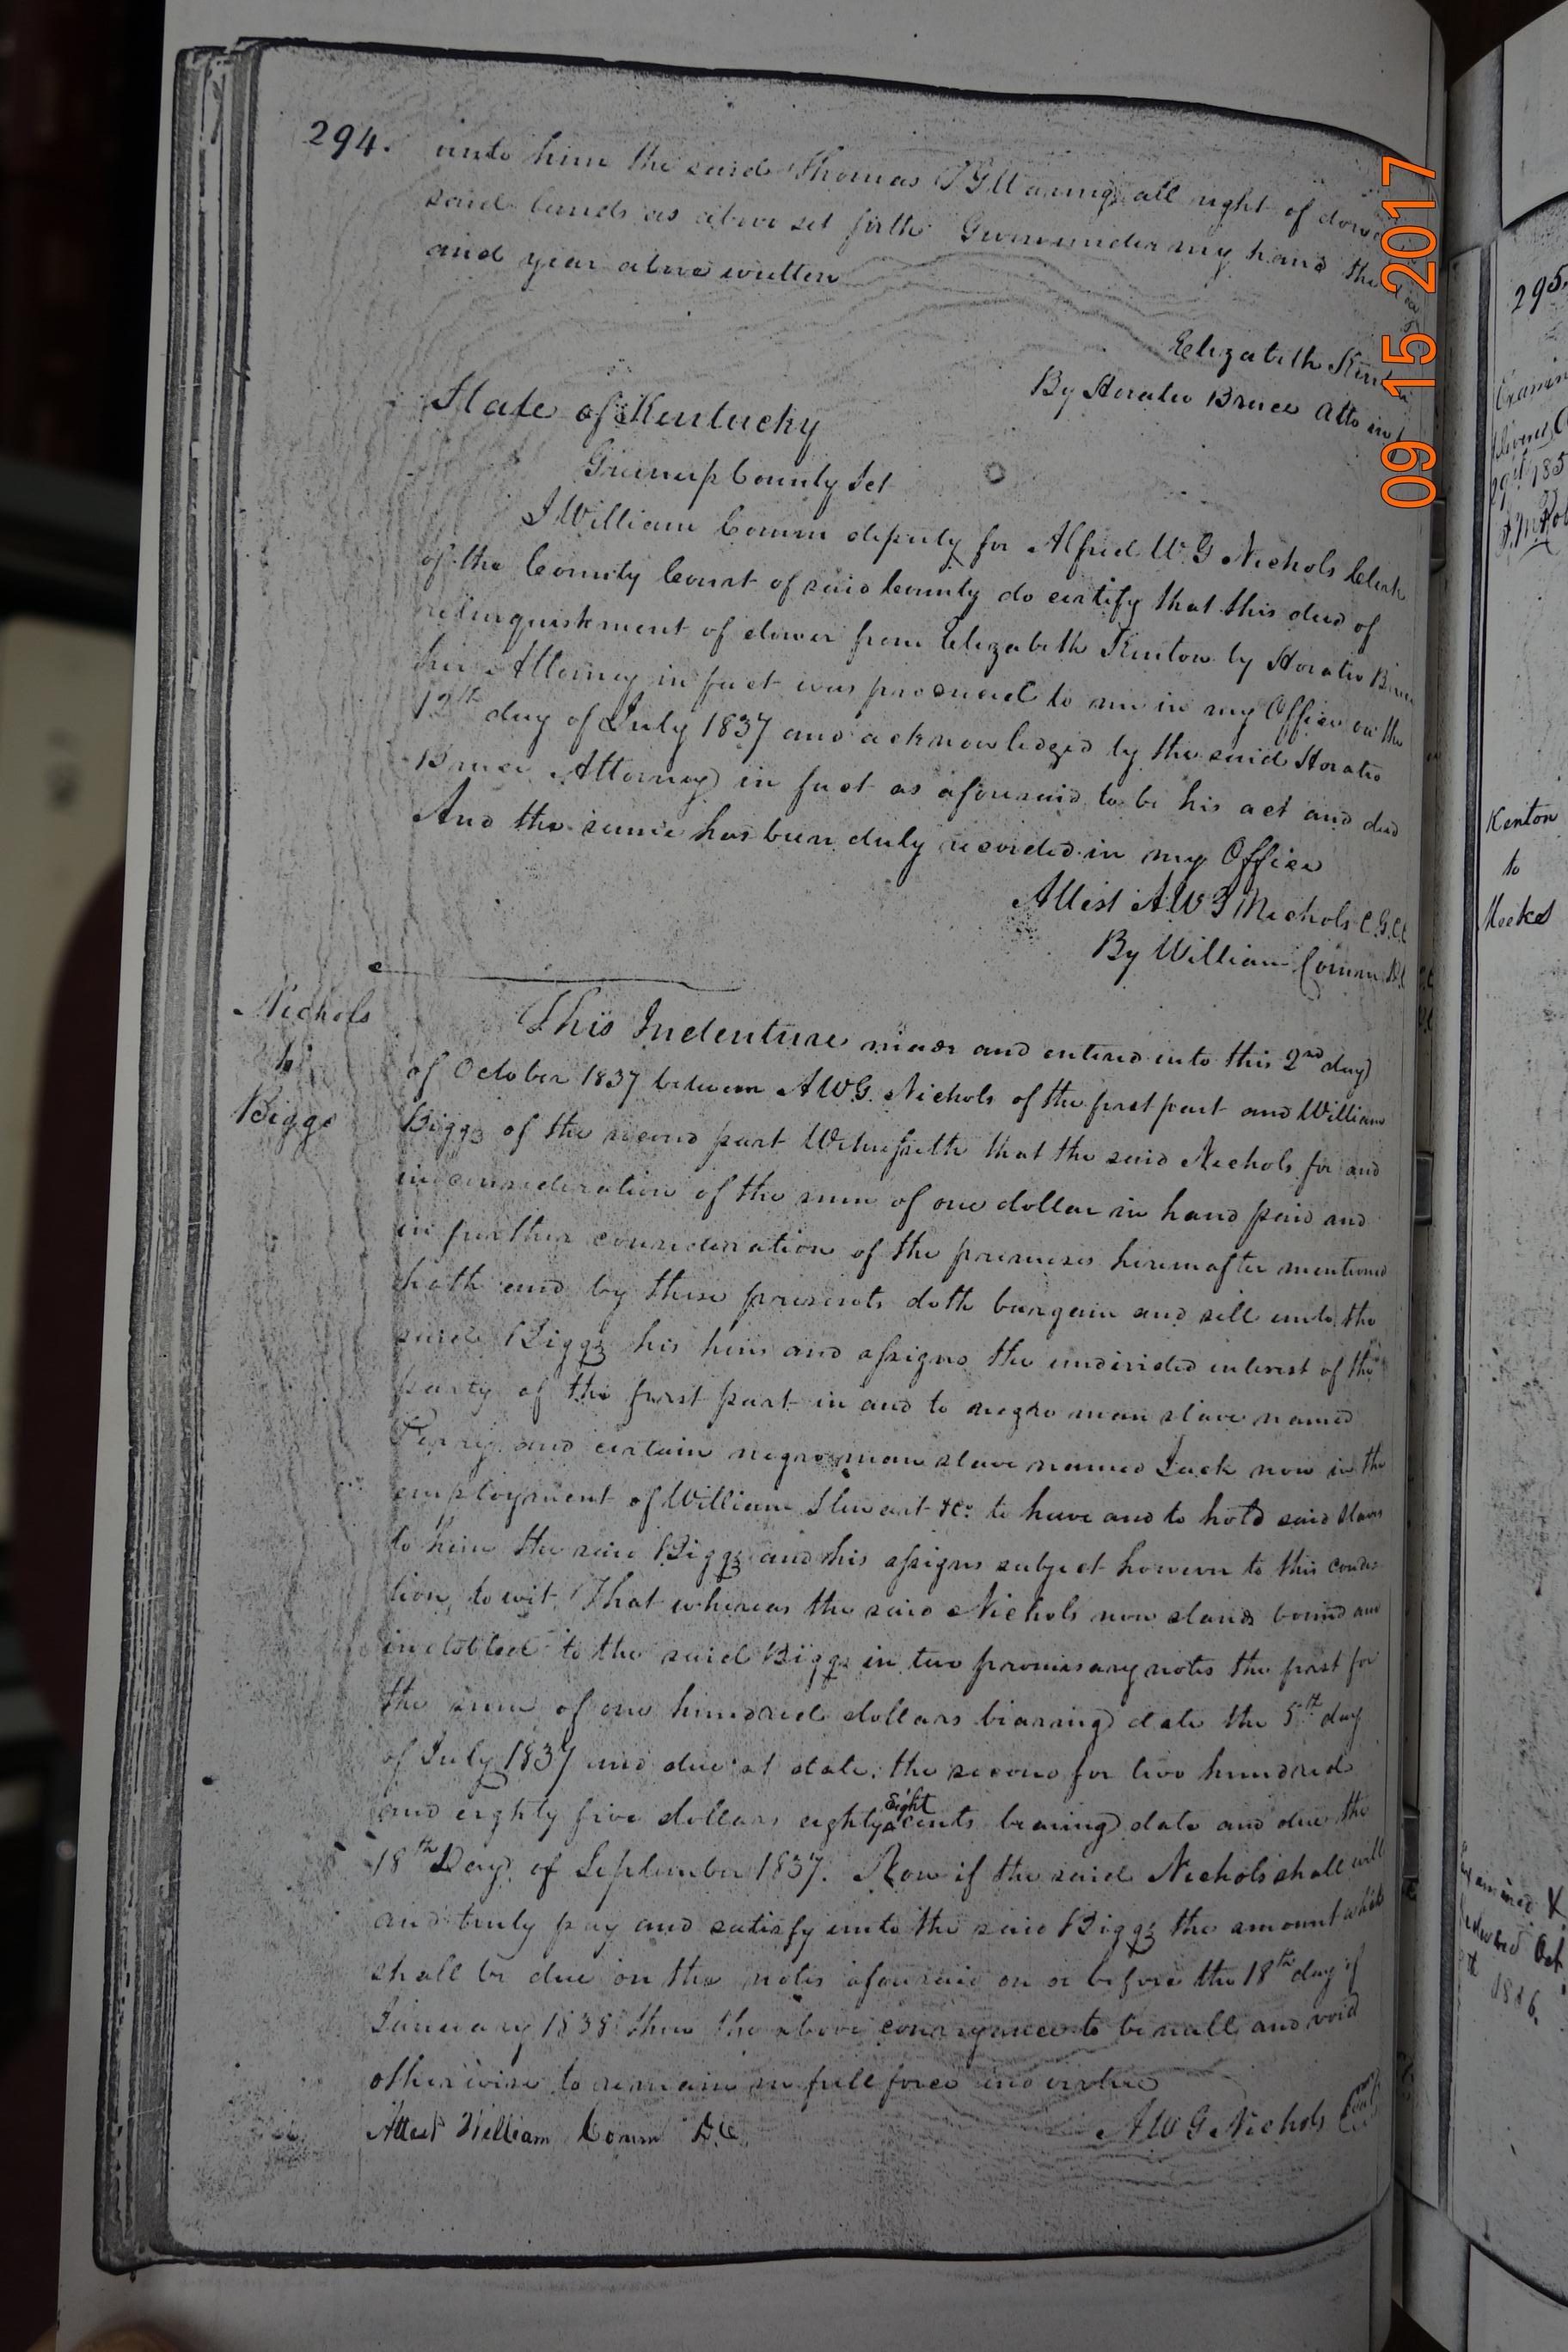 294. unto him the said Thomas T G Waring all right of dower
said lands as above set forth Given under my hand the day
and year above written
Elizabeth Kenton
By Horatio Bruce Atto in f
State of Kentucky
Greenup County Sct
I William Corum deputy for Alfred W. G Nichols Clerk
of the County Court of said County do certify that this deed of
relinquishment of dower from Elizabeth Kenton by Horatio Bruce
her Attorney in fact was produced to me in my Office on the
12th day of July 1837 and acknowledged by the said Horatio
Bruce Attorney in fact as aforesaid to be his act and deed
And the same has been duly recorded in my Office
Attest A W G Nichols C.G.C.C
By William Corum D.C
Nichols
to
Biggs
This Indenture made and entered into this 2nd day
of October 1837 between A W G. Nichols of the first part and William
Biggs of the second part Witnesseth that the said Nichols for and
in consideration of the sum of one dollar in hand paid and
in further consideration of the premises hereinafter mentioned
hath and by these presents doth bargain and sell unto the
said Biggs his heirs and assigns the undivided interest of the
party of the first part in and to negro man slave named
Perry and certain negro man slave named Jack now in the
employment of William Stewart &c. to have and to hold said slaves
to him the said Biggs and his assigns subject however to this condi-
tion, to wit, That whereas the said Nichols now stands bound and
indebted to the said Biggs in two promisary notes the first for
the sum of one hundred dollars bearing date the 5th day
of July 1837 and due at date. the second for two hundred
and eighty five dollars eighty eight cents bearing date and due the
18th Day of September 1837. Now if the said Nichols shall well
and truly pay and satisfy unto the said Biggs the amount which
shall be due on the notes aforesaid on or before the 18th day of
January 1838 then the above conveyance to be null and void
otherwise to remain in full force and virtue
Attest William Corum D.C.
A W G Nichols Seal
295.
Kenton
to
09 15 2017